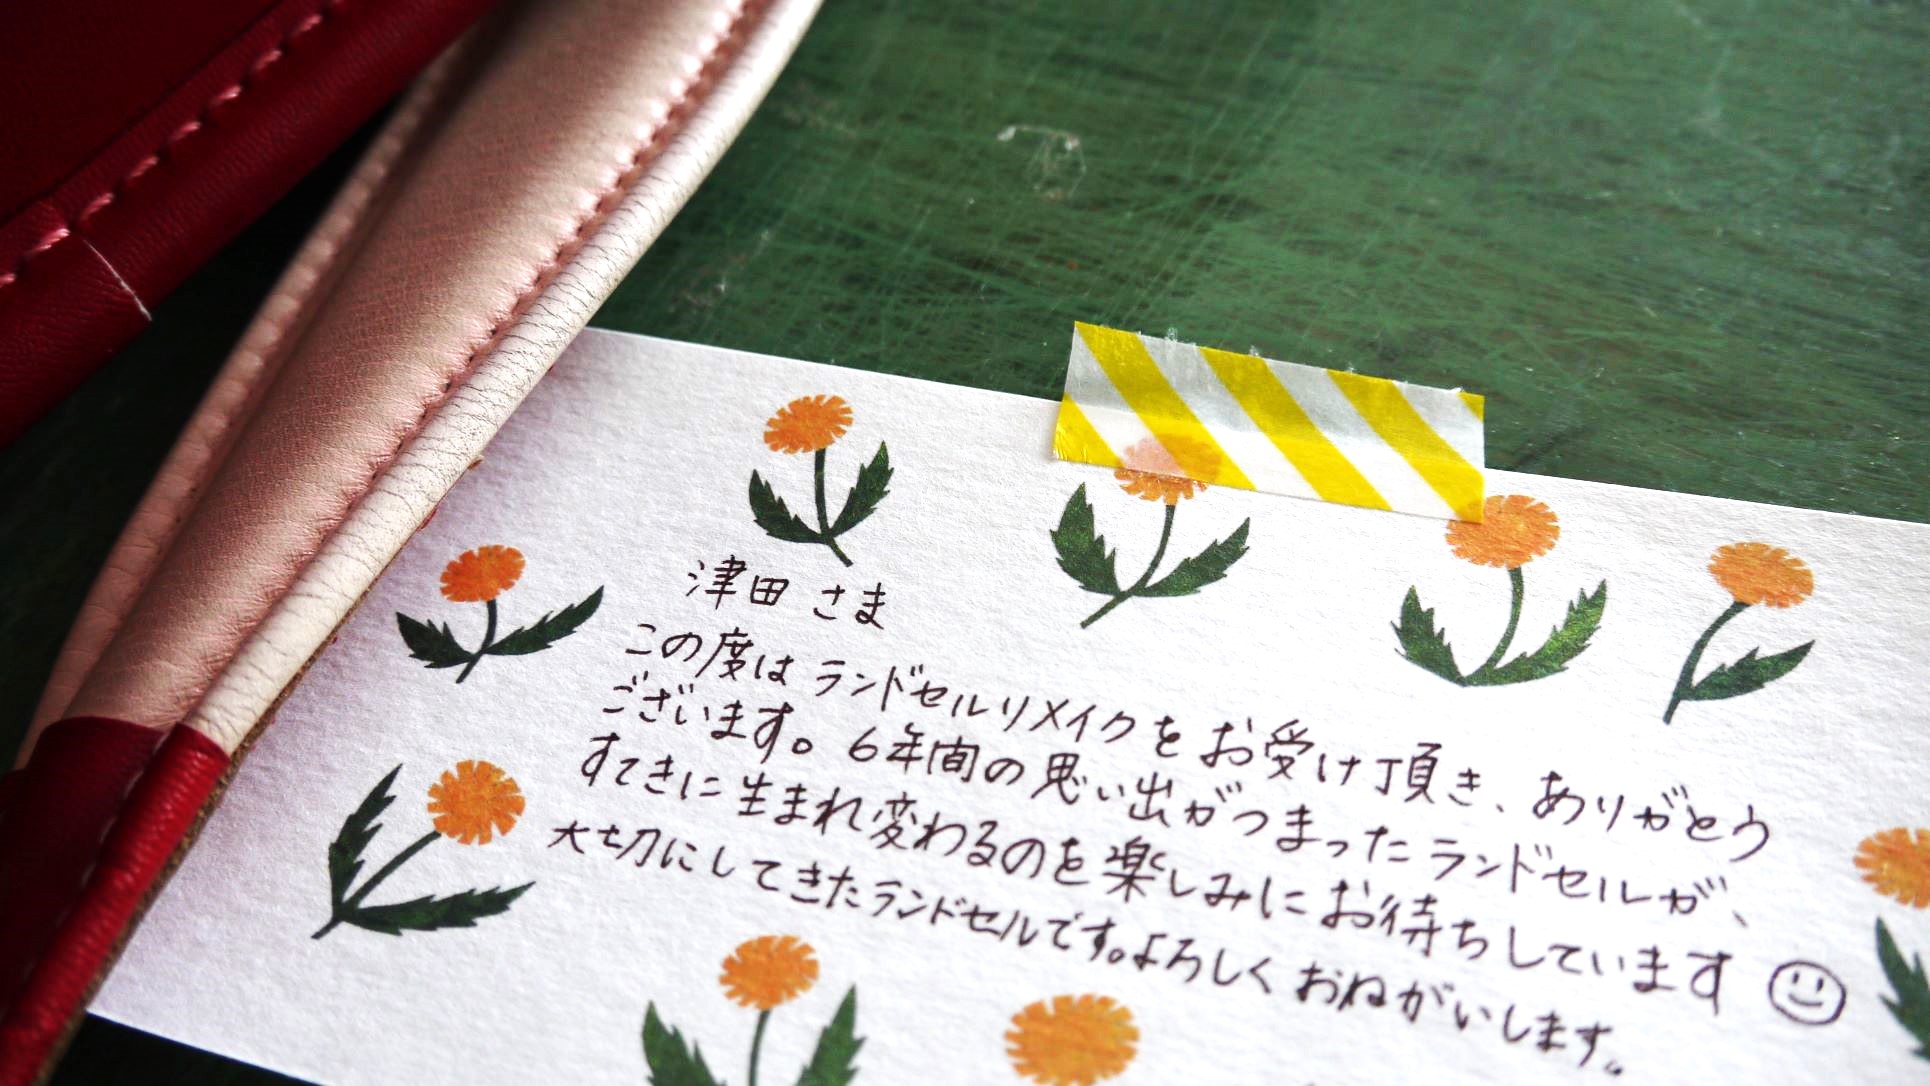 津田 さま
この度は ランドセルリメイクを お受け頂き、ありがとう
ございます。6年間の思い出がつまった ランドセルが、
すてきに生まれ変わるのを楽しみに お待ちしています
大切にしてきたランドセルです。よろしく おねがいします。